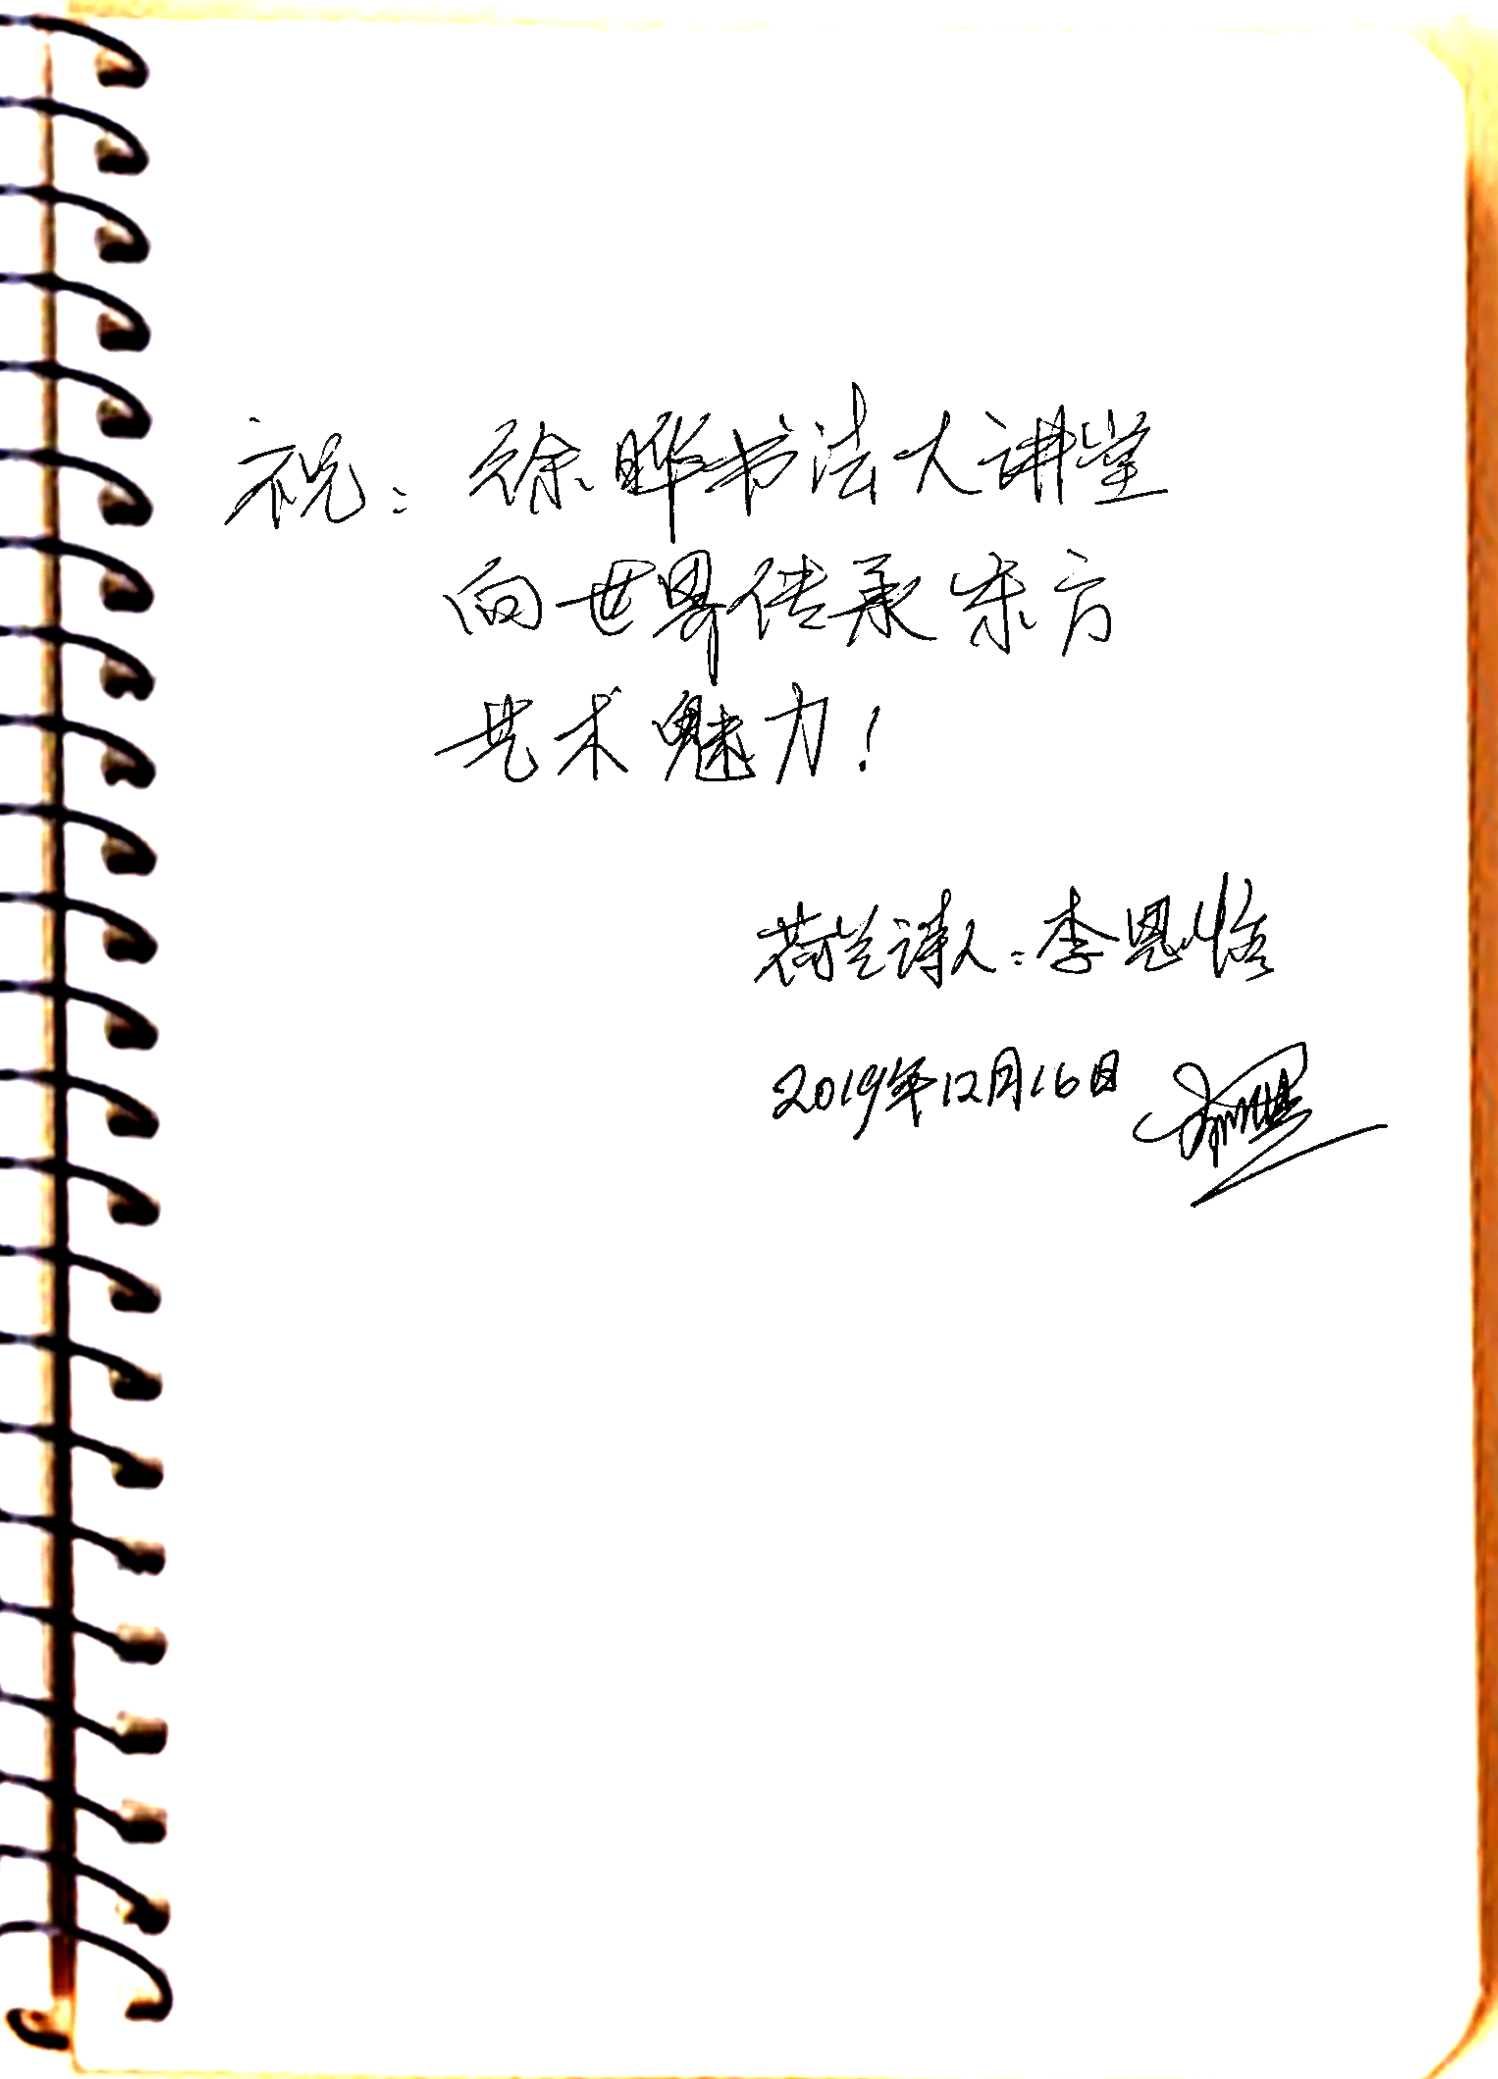 祝：徐晔书法大讲堂
向世界传承东方
艺术魅力！
荷兰诗人：李恩
2019年12月16日